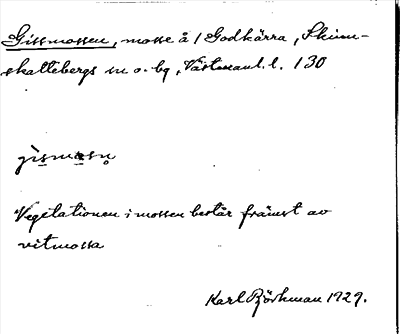 Gissmossen, mosse å 1 Godkärra, Skinn-
skattebergs sn o. bg, Västmanl. l. 130
Vegetationen i mossen består främst av
vitmossa
Karl Björkman 1929.